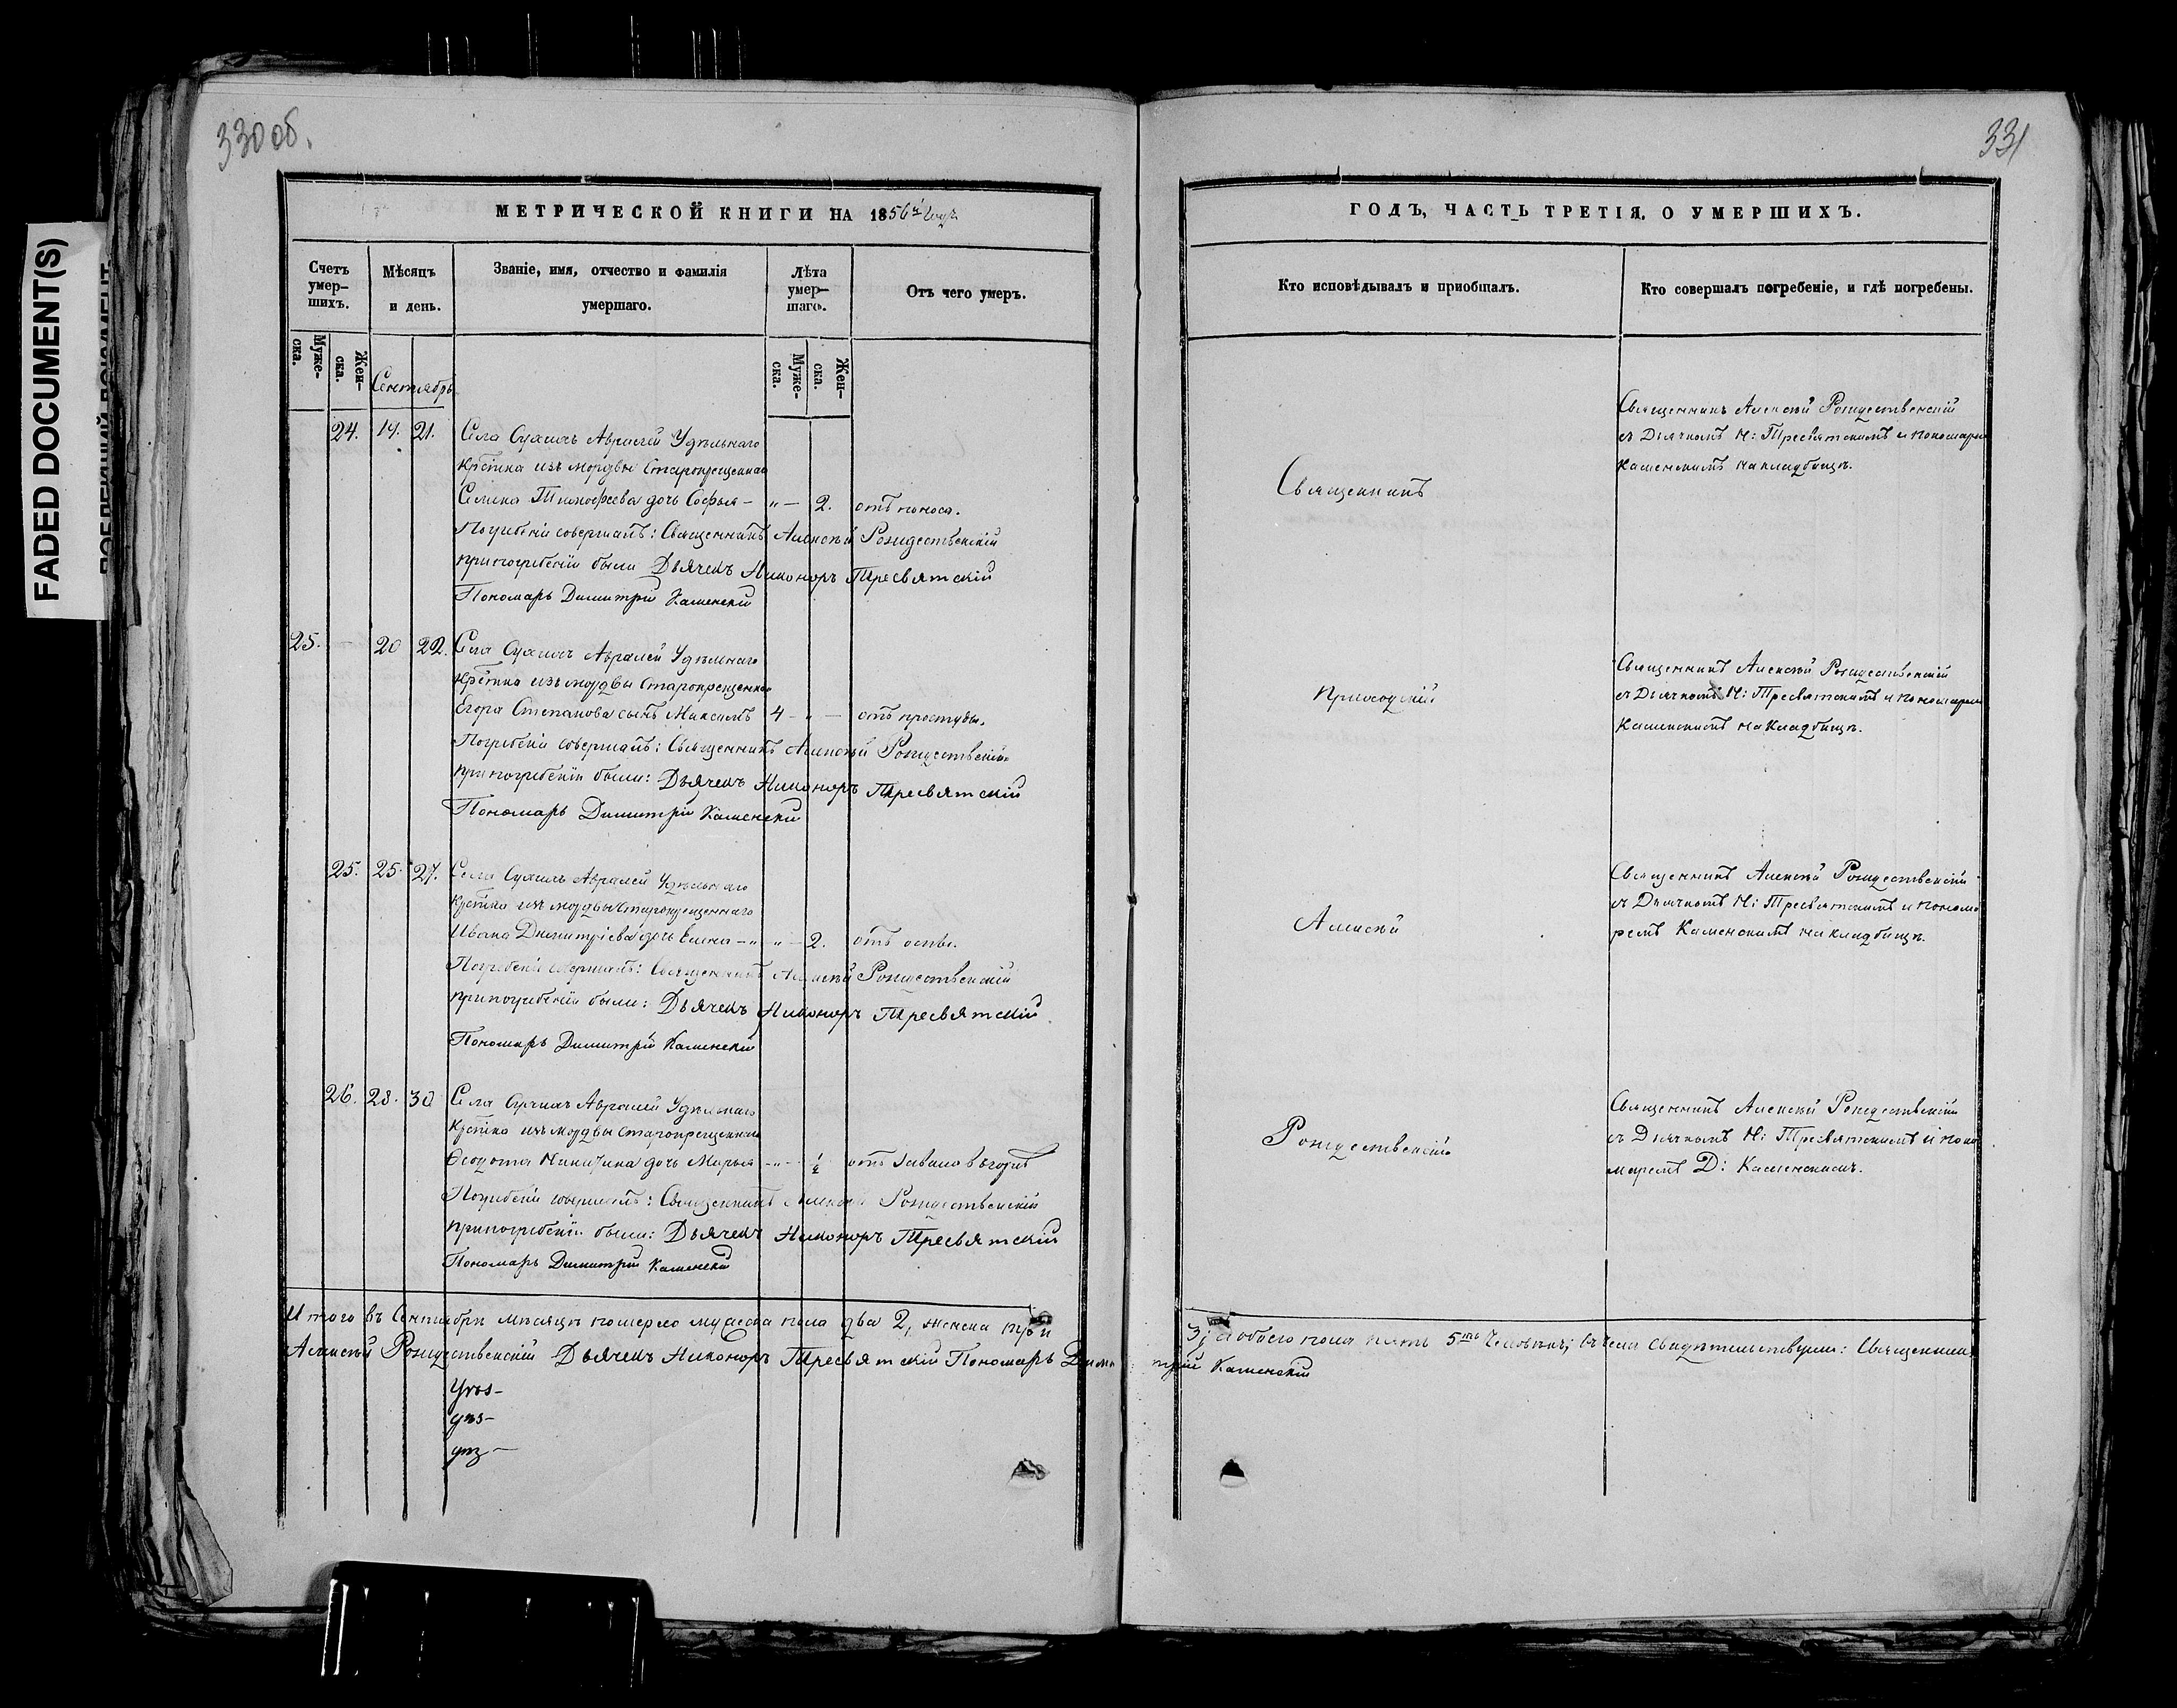 330 об.
МЕТРИЧЕСКОЙ КНИГИ НА 1856
Счетъ умер-шихъ.
Мѣсяцъ и день.
Званіе, имя, отчество и фамилія умершаго.
Лѣта умер-шаго.
Отъ чего умеръ.
Муже-ска.
Жен-ска.
Муже-ска.
Жен-ска.
Сентябрь
24. 19. 21. Села Авралей Удѣльнаго
кр̃тина изъ мордвы старокрещеннаго
Тимофеева дочь Софья — „ — 2. отъ поноса.
Погребеніе совершалъ: Священникъ Алексѣй Рождественскій
при погребеніи были Дьячекъ Никоноръ Тресвятскій
Пономарь Димитрій Каменскій
25. — 20 22. Села Авралей Удѣльнаго
кр̃тина изъ мордвы старокрещеннаго
Егора Степанова сынъ Максимъ 4 — „ — отъ простуды.
Погребеніе совершалъ: Священникъ Алексѣй Рождественскій
при погребеніи были: Дьячекъ Никоноръ Тресвятскій
Пономарь Димитрій Каменскій
25. 25. 27. Села Авралей Удѣльнаго
кр̃тина изъ мордвы старокрещеннаго
Ивана Димитріева дочь Елена — „ — 2. отъ оспы.
Погребеніе совершалъ: Священникъ Алексѣй Рождественскій
при погребеніи были: Дьячекъ Никоноръ Тресвятскій
Пономарь Димитрій Каменскій
26. 28. 30 Села Авралей Удѣльнаго
кр̃тина изъ мордвы старокрещеннаго
Ѳедота Никитина дочь Марья — „ — ½ отъ
Погребеніе совершалъ: Священникъ Алексѣй Рождественскій
при погребеніи были: Дьячекъ Никоноръ Тресвятскій
Пономарь Димитрій Каменскій
Итого въ Сентябрѣ мѣсяцѣ померло мужеска пола два 2, женска три
Алексѣй Рождественскій Дьячекъ Никоноръ Тресвятскій Пономарь Дими
331
ГОДЪ, ЧАСТЬ ТРЕТІЯ, О УМЕРШИХЪ.
Кто исповѣдывалъ и пріобщалъ.
Кто совершалъ погребеніе, и гдѣ погребены.
Священникъ
Приходскій
Алексѣй
Рождественскій
Священникъ Алексѣй Рождественскій
съ Дьячкомъ Н: Тресвятскимъ и пономаремъ
Каменскимъ на кладбищѣ.
Священникъ Алексѣй Рождественскій
съ Дьячкомъ Н: Тресвятскимъ и пономаремъ
Каменскимъ на кладбищѣ.
Священникъ Алексѣй Рождественскій
съ Дьячкомъ Н: Тресвятскимъ и понома
ремъ Каменскимъ на кладбищѣ.
Священникъ Алексѣй Рождественскій
съ Дьячкомъ Н: Тресвятскимъ и поно
маремъ Д: Каменскимъ.
3; а обоего пола пять 5ть человѣкъ; въ чемъ свидѣтельствуемъ: Священникъ
трій Каменскій
FADED DOCUMENT(S)